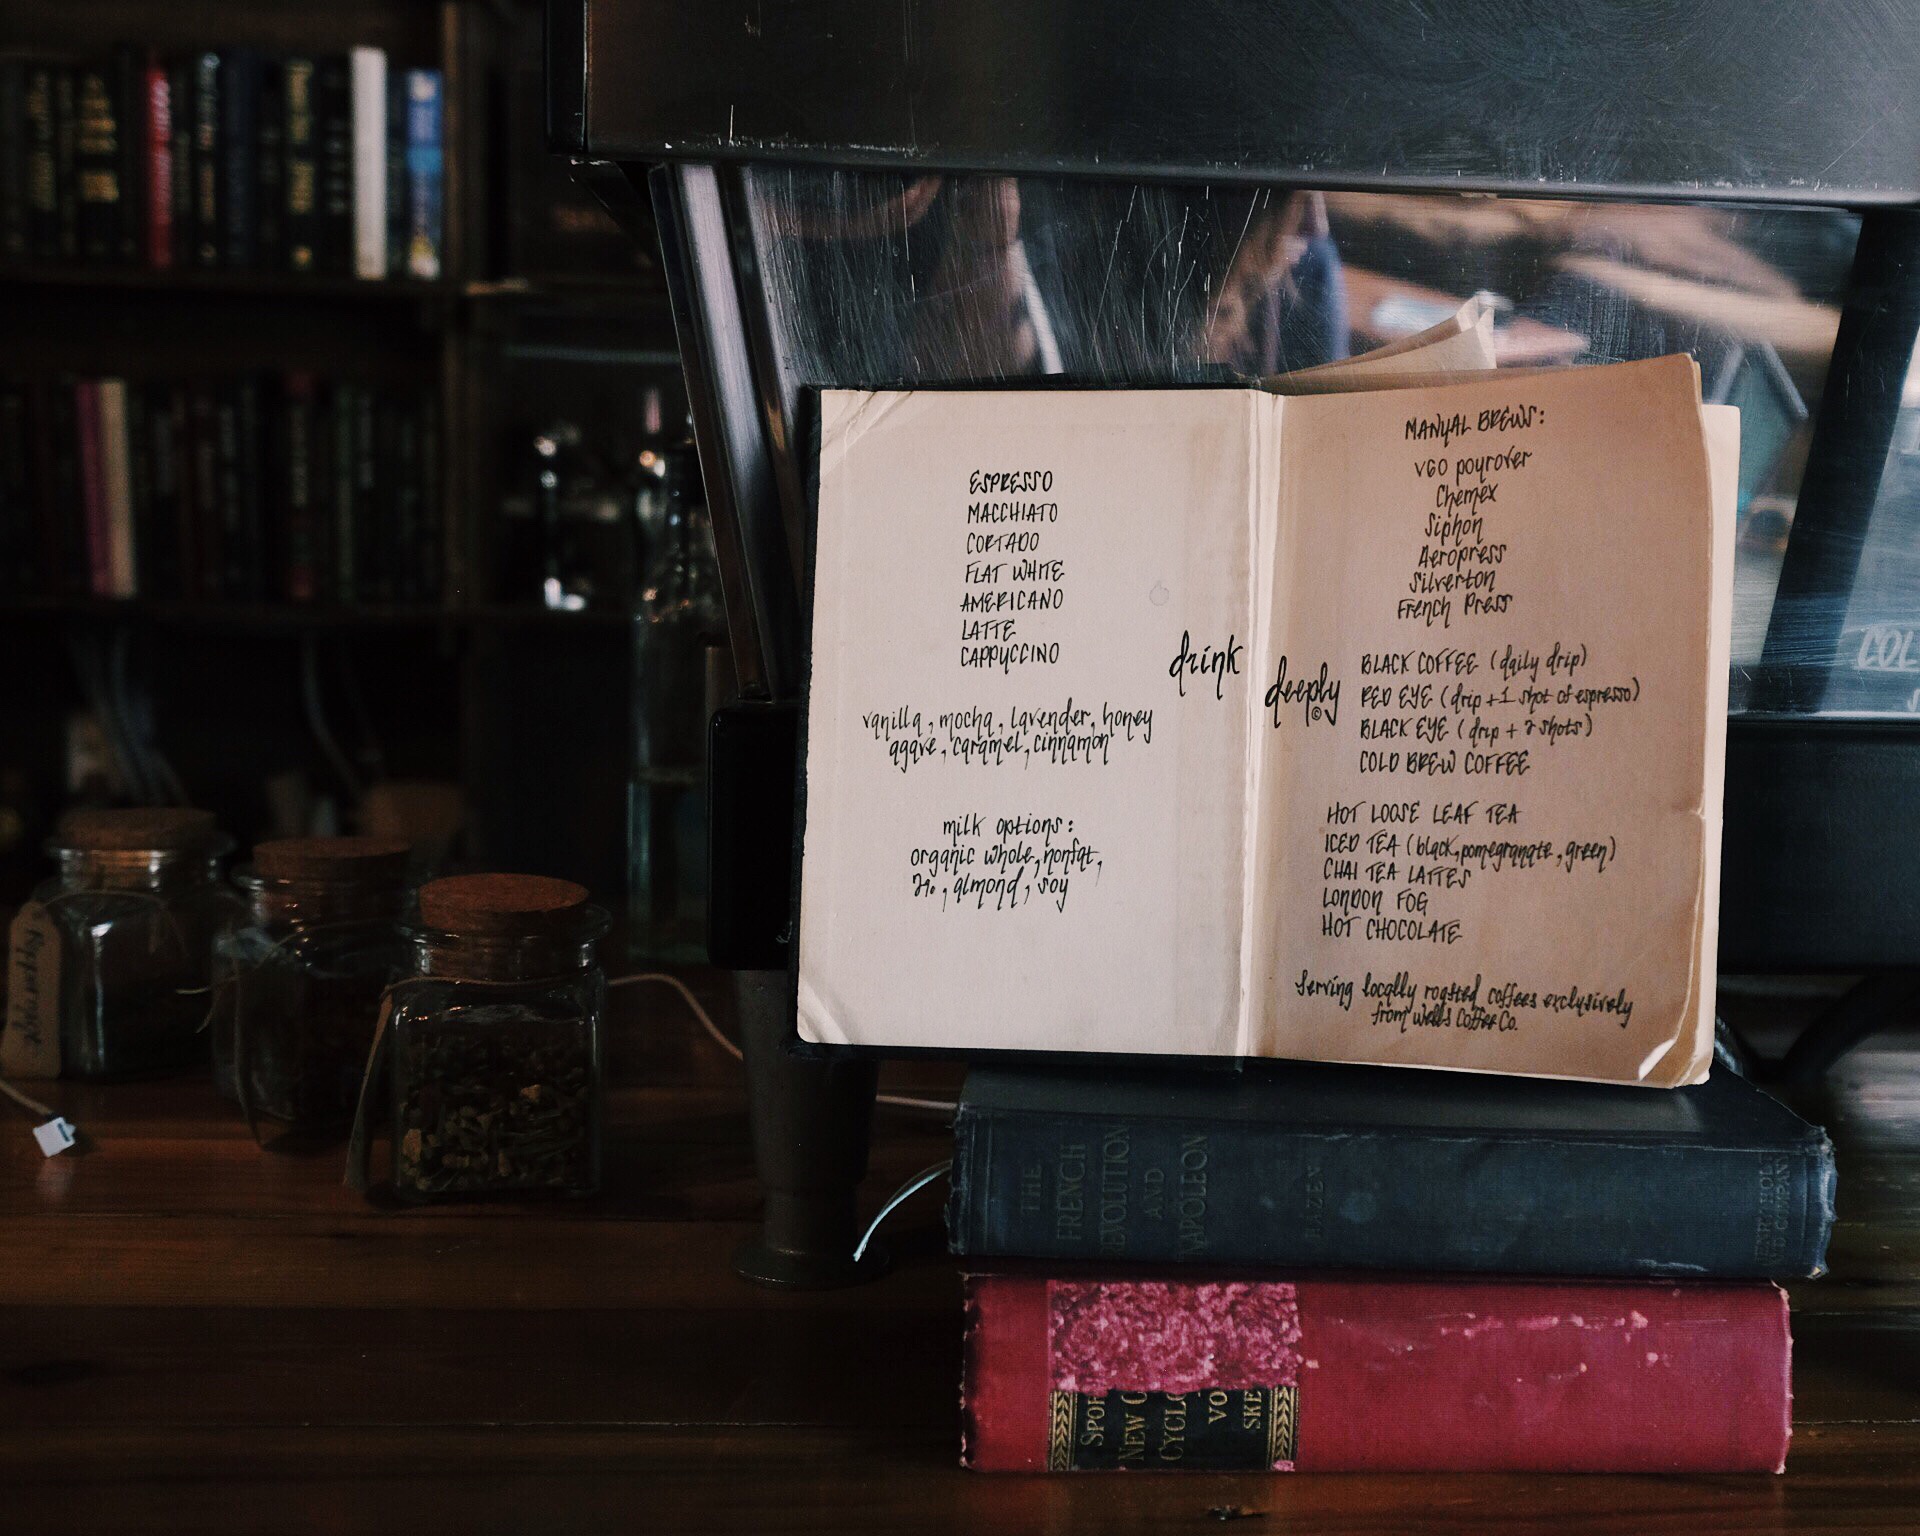 ESPRESSO
MACCHIATO
CORTADO
FLAT WHITE
AMERICANO
LATTE
CAPPUCCINO
vanilla, mocha, lavender, honey
agave, caramel, cinnamon
milk options:
organic whole, nonfat,
2%, almond, soy
drink
deeply
©
MANUAL BREWS:
V60 pourover
Chemex
Siphon
Aeropress
Silverton
French Press
BLACK COFFEE (daily drip)
RED EYE (drip + 1 shot of espresso)
BLACK EYE (drip + 2 shots)
COLD BREW COFFEE
HOT LOOSE LEAF TEA
ICED TEA (black, pomegranate, green)
CHAI TEA LATTES
LONDON FOG
HOT CHOCOLATE
Serving locally roasted coffees exclusively
from Wells Coffee Co.
THE
FRENCH
REVOLUTION
AND
NAPOLEON
HAZEN
HENRY HOLT
AND COMPANY
SPOF
NEW C
CYCLO
VO
SKE
Peppermint
COL